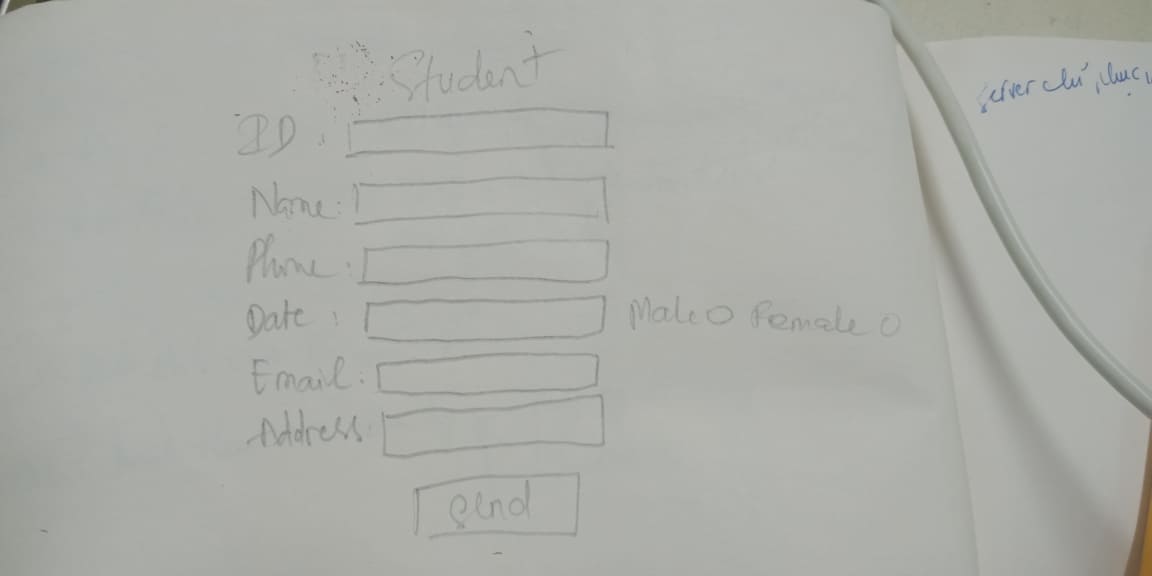 Student
ID :
Name :
Phone :
Date : Male Female
Email :
Address :
Send
server